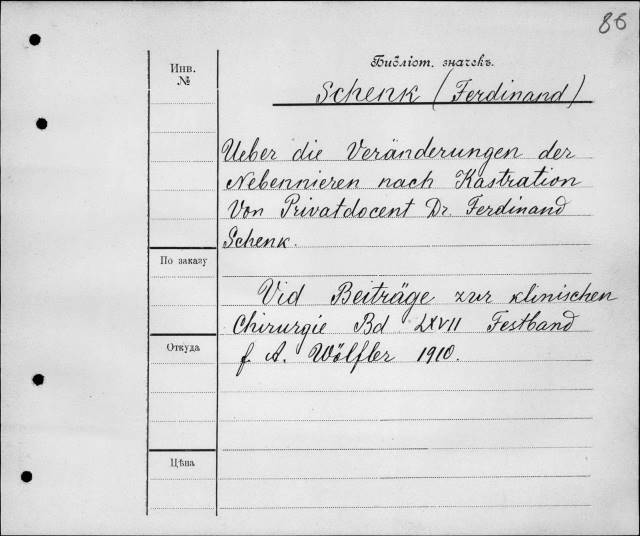 86
Инв.
№
Библіот. значекъ.
Schenk (Ferdinand)
Ueber die Veränderungen der
Nebennieren nach Kastration
Von Privatdocent Dr. Ferdinand
Schenk.
По заказу
Vid Beiträge zur klinischen
Chirurgie Bd LXVII Festband
Откуда
f. A. Wölfler 1910.
Цѣна